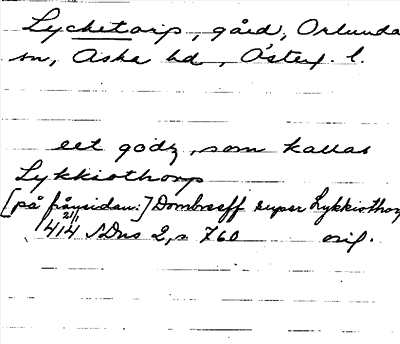 Lycketorp, gård, Orlunda
sn, Aska hd, Österg. l.
eet godz, som kallas
Lykkiothorp
[på frånsidan:] Dombreff super Lykkiothorp
1414 21/1 SDns 2, s 760 orig.